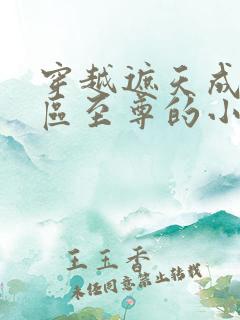 穿越遮天成
區至尊的小
王玉香
未经同意禁止转载